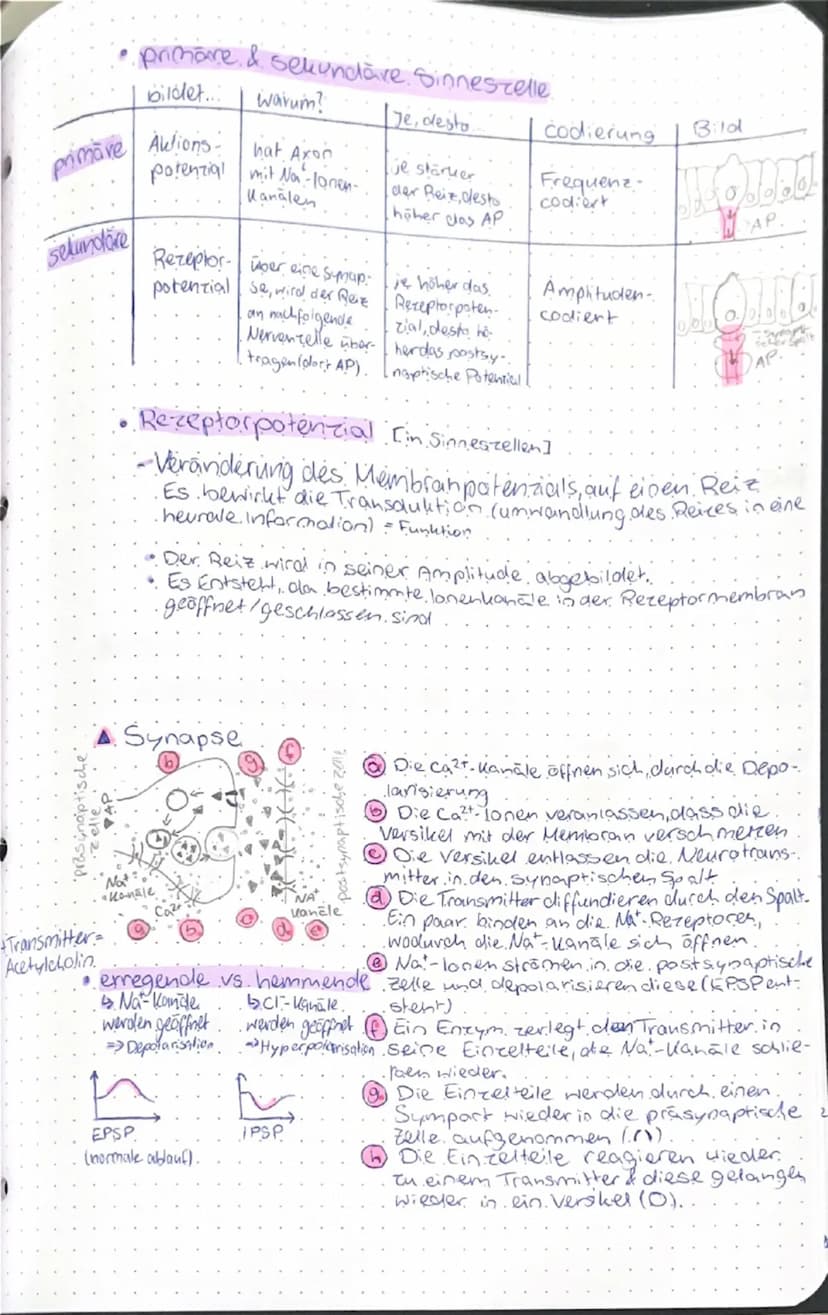 • primäre & sekundäre Sinneszelle
bildet... warum? Je, desto... codierung Bild
primäre
Aktions-
potenzial
hat Axon
mit Na⁺-Ionen-
kanälen
je stärker
der Reiz, desto
höher das AP
Frequenz-
codiert
AP
sekundäre
Rezeptor-
potenzial
über eine Synap-
se, wird der Reiz
an nachfolgende
Nervenzelle über-
tragen (dort AP).
je höher das
Rezeptorpoten-
zial, desto hö-
her das postsy-
naptische Potential
Amplituden-
codiert
AP
• Rezeptorpotenzial [in Sinneszellen]
- Veränderung des Membranpotenzials, auf einen Reiz
Es bewirkt die Transduktion (umwandlung des Reizes in eine
neurale Information) = Funktion
• Der Reiz wird in seiner Amplitude abgebildet.
• Es Entsteht, da bestimmte Ionenkanäle in der Rezeptormembran
geöffnet/geschlossen sind
Synapse
b g f
präsynaptische
zelle
AP
postsynaptische zelle
Na⁺
Kanäle
Ca²⁺
NA⁺
Kanäle
a b c d e
Transmitter =
Acetylcholin
a Die Ca²⁺-Kanäle öffnen sich, durch die Depo-
larisierung
b Die Ca²⁺-Ionen veranlassen, dass die
Versikel mit der Membran verschmelzen
c Die Versikel entlassen die Neurotrans-
mitter in den synaptischen Spalt
d Die Transmitter diffundieren durch den Spalt.
Ein paar binden an die Na⁺-Rezeptoren,
wodurch die Na⁺-Kanäle sich öffnen
e Na⁺-Ionen strömen in die postsynaptische
zelle und depolarisieren diese (EPSP ent-
steht)
f Ein Enzym zerlegt den Transmitter in
seine Einzelteile, die Na⁺-Kanäle schlie-
ßen wieder.
g Die Einzelteile werden durch einen
Symport wieder in die präsynaptische
Zelle aufgenommen
h Die Einzelteile reagieren wieder
zu einem Transmitter & diese gelangen
wieder in ein Versikel (O).
• erregende vs. hemmende
↳ Na⁺-Kanäle
werden geöffnet
=> Depolarisation
↳ Cl⁻-Kanäle
werden geöffnet
=> Hyperpolarisation
EPSP
(normale ablauf)
IPSP